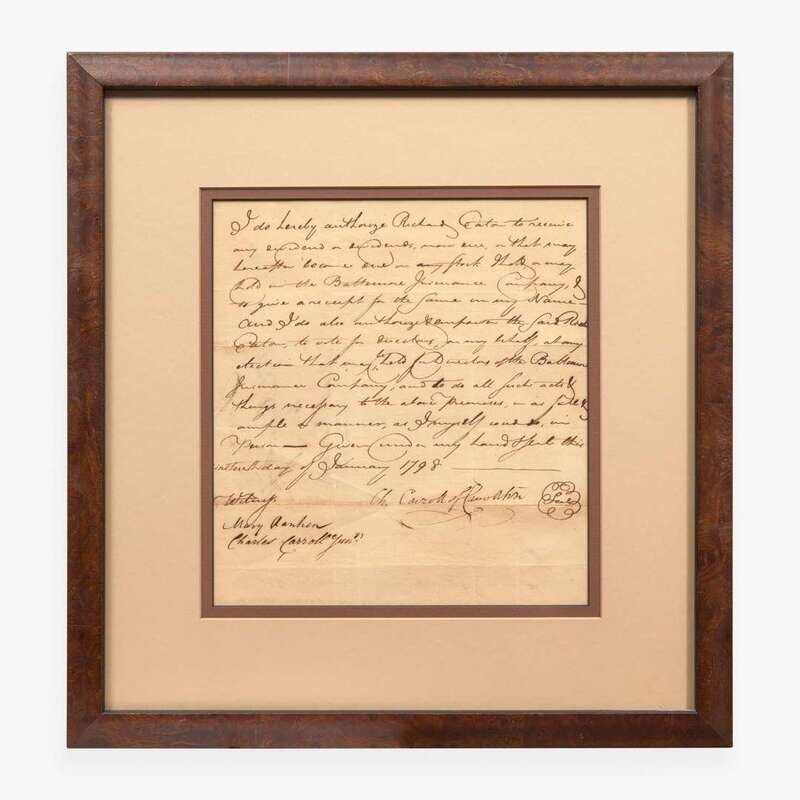 I do hereby authorize Richard Caton to receive
any dividend or dividends, now due, or that may
hereafter become due on any stock I hold or may
hold in the Baltimore Insurance Company, &
to give a receipt for the same in my Name—
And I do also authorize & empower the said Rich
Caton, to vote for directors, on my behalf, at any
election that may be held for Directors of the Baltimore
Insurance Company, and to do all such acts &
things necessary to the above premises, in as full &
ample a manner, as I myself could do, in
Person— Given under my hand & seal this
day of January 1798
Witness Ch. Carroll of Carrollton Seal
Mary
Charles Carroll Junr.